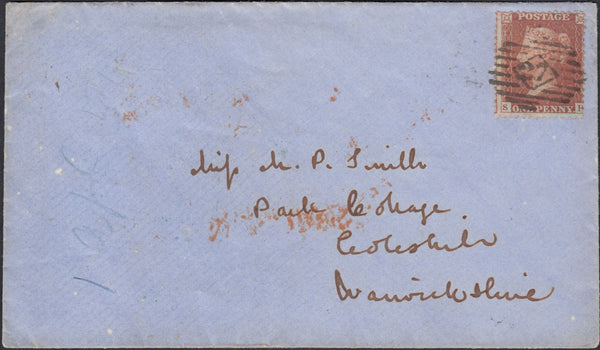 POSTAGE
S ONE PENNY
27
Miss M. P. Smith
Park Cottage
Coleshill
Warwickshire